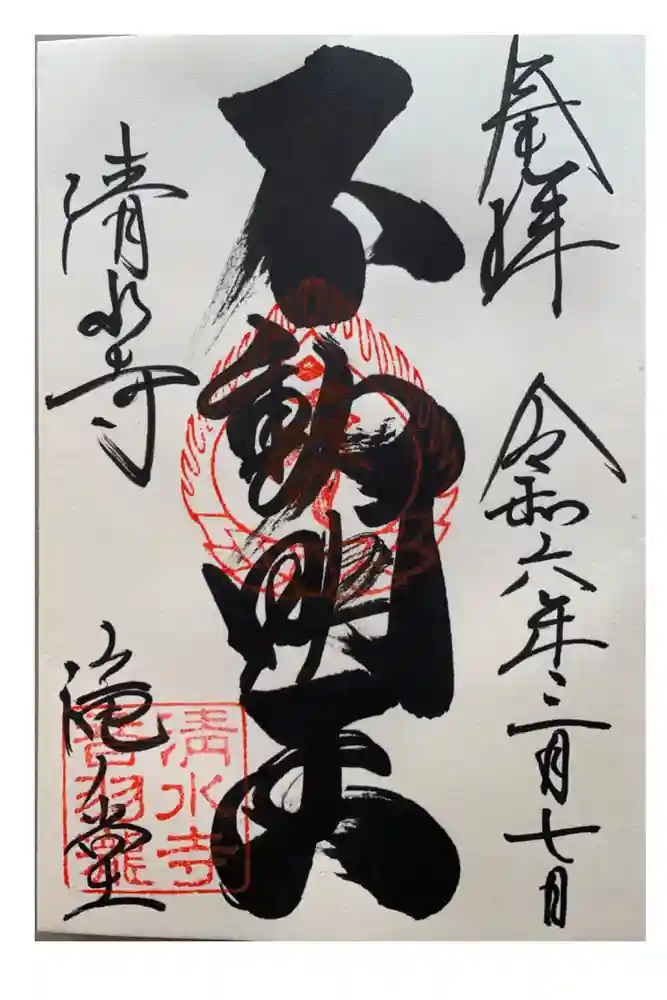 奉拝 令和六年三月七日
不動明王
清水寺 滝ノ堂
清水寺
音羽瀧